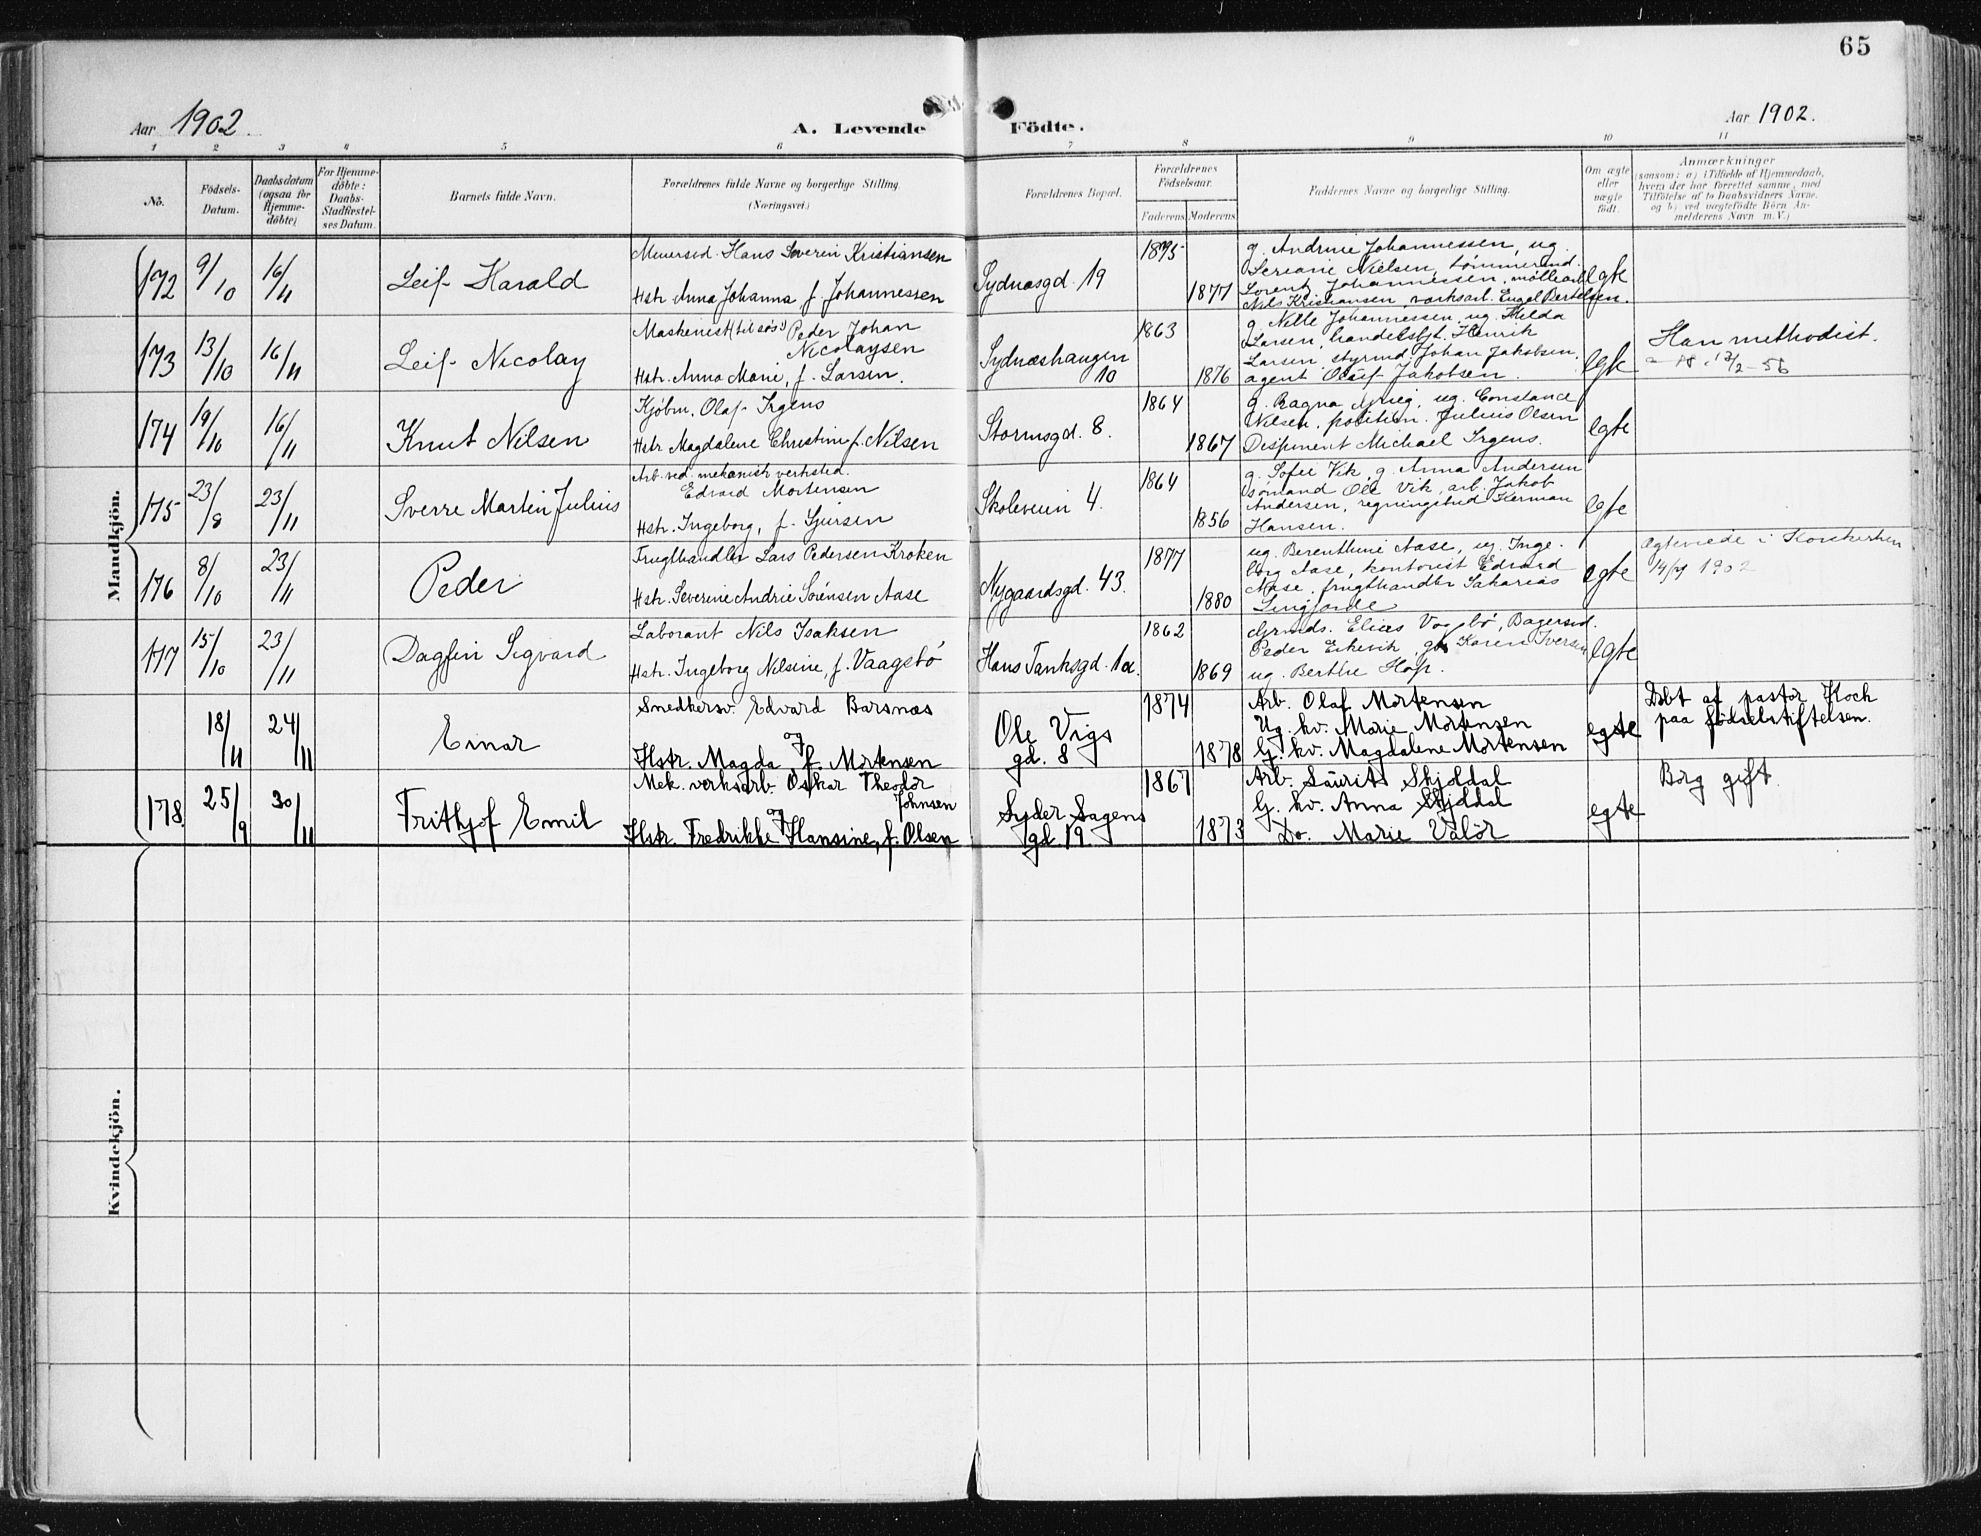 65
Aar 1902.
A. Levende Födte.
Aar 1902.
1 2 3 4 5 6 7 8 9 10 11
No.
Födsels-
Datum.
Daabsdatum
(ogsaa for
Hjemme-
döbte)
For Hjemme-
döbte:
Daabs-
Stadfæstel-
ses Datum.
Barnets fulde Navn.
Forældrenes fulde Navne og borgerlige Stilling.
(Næringsvei.)
Forældrenes Bopæl.
Forældrenes
Födselsaar.
Faderens Moderens
Faddernes Navne og borgerlige Stilling.
Om ægte
eller
uægte
födt.
Anmærkninger
(saasom: a) i Tilfælde af Hjemmedaab,
hvem der har forrettet samme, med
Tilföielse af to Daabsvidners Navne,
og b) ved uægtefödte Börn An-
melderens Navn m. V.)
Mandkjön.
172 9/10 16/11
Leif Harald
Murersvd. Hans Severin Kristiansen
Hstr. Anna Johanna, f. Johannessen
Sydnæsgd. 19
1875
1877
g. Andrine Johannessen, ug.
Seriane Nielsen, tømmermd.
Lorentz Johannessen, møllearb.
Nils Kristiansen, værksarb. Engel Bertelsen.
egte
173 13/10 16/11
Leif Nicolay
Maskinist (tilsøs) Peder Johan
Nicolaysen
Hstr. Anna Marie, f. Larsen.
Sydnæshaugen
10
1863
1876
g. Nille Johannessen, ug. Hilda
Larsen, handelsbft. Henrik
Larsen, styrmd. Johan Jakobsen,
agent Oluf Jakobsen.
egte
Han methodist.
174 19/10 16/11
Knut Nilsen
Kjøbm. Olaf Irgens
Hstr. Magdalene Christine f. Nilsen
Stormsgd. 8.
1864
1867
g. Ragna Grieg, ug. Constance
Nilsen, politim. Julius Olsen
Disponent Michael Irgens.
egte
175 23/8 23/11
Sverre Martin Julius
Arb. ved mekanisk verksted.
Edvard Mortensen
Hstr. Ingeborg, f. Sjursen
Skoleveien 4.
1864
1856
g. Sofie Vik, g. Anna Andersen
sømand Ole Vik, arb. Jakob
Andersen, regningsbud Herman
Hansen.
egte
176 8/10 23/11
Peder
Frugthandler Lars Pedersen Kroken
Hstr. Severine Andrie Sørensen Aase
Nygaardsgd. 43.
1877
1880
ug. Berenthine Aase, ug. Inge-
borg Aase, kontorist Edvard
Aase, frugthandler Sakarias
egte
Ægteviede i Korskirken
1902
177 15/10 23/11
Dagfin Sigvard
Laborant Nils Isaksen
Hstr. Ingeborg Nilsine, f. Vaagsbø
Hans Tanksgd. 1a.
1862
1869
Grmds. Elias Vaagsbø, Bagersvd.
Peder Eikevik, gk. Karen Iversen
ug. Berthe Hop.
egte
18/11 24/11
Einar
Snedkersv. Edvard Barsnæs
og
Hstr. Magda f. Mortensen
Ole Vigs
gd. 8
1874
1878
Arb. Olaf Mortensen
Ug. kv. Marie Mortensen
G. kv. Magdalene Mortensen
egte
Døbt af pastor Koch
paa fødselsstiftelsen.
178. 25/9 30/11
Frithjof Emil
Mek. verksarb. Oskar Theodor
Johnsen
og
Hstr. Fredrikke Hansine, f. Olsen
Syder Sagens
gd. 19.
1867
1873
Arb. Laurits Skjoldal
G. kv. Anna Skjoldal
Do. Marie Valør
egte
Borg. gift.
Kvindekjön.